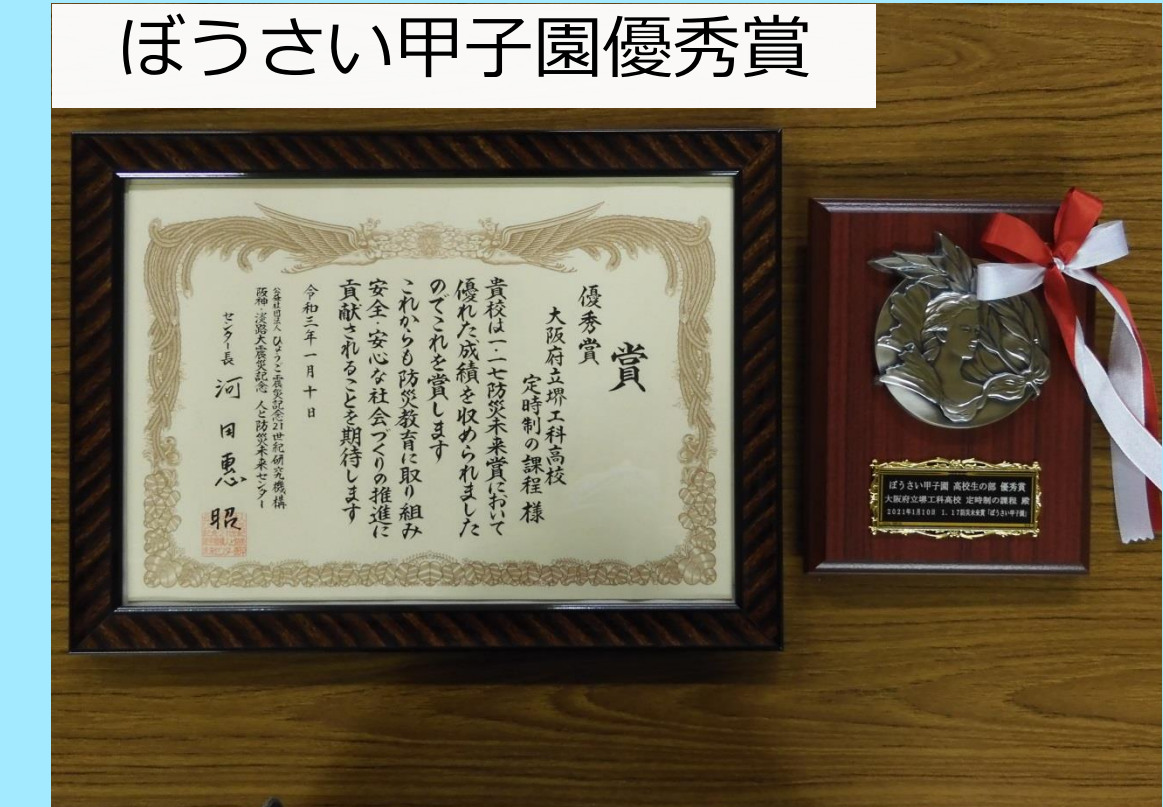 ぼうさい甲子園優秀賞
賞
優秀賞
大阪府立堺工科高校
定時制の課程 様
貴校は一・一七防災未来賞において
優れた成績を収められました
のでこれを賞します
これからも防災教育に取り組み
安全・安心な社会づくりの推進に
貢献されることを期待します
令和三年一月十日
公益社団法人 ひょうご震災記念21世紀研究機構
阪神・淡路大震災記念 人と防災未来センター
センター長 河田惠昭
ぼうさい甲子園 高校生の部 優秀賞
大阪府立堺工科高校 定時制の課程 殿
2021年1月10日 1.17防災未来賞「ぼうさい甲子園」